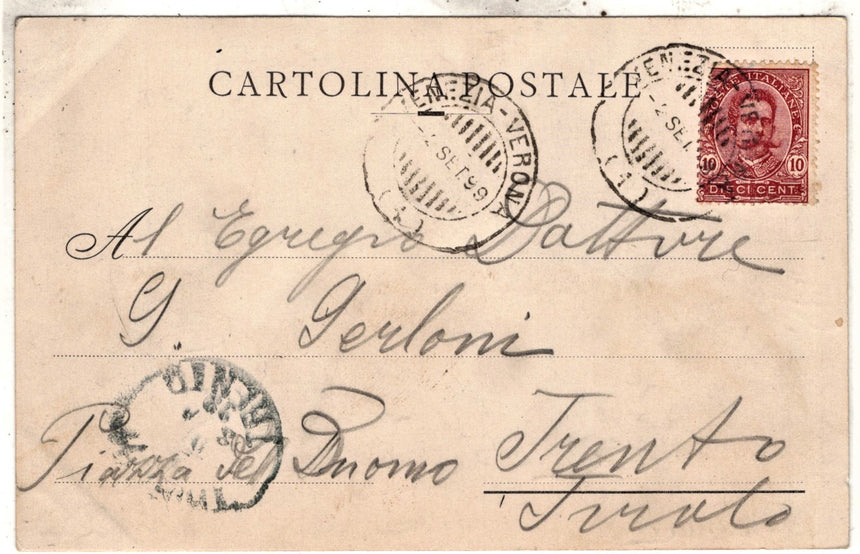 CARTOLINA POSTALE
VENEZIA-VERONA
2 SET 99
VENEZIA
2 SET
POSTE ITALIANE
10 10
DIECI CENT.
Al Egregio Dattore
G. Gerloni
Piazza del Duomo Trento
Tirolo